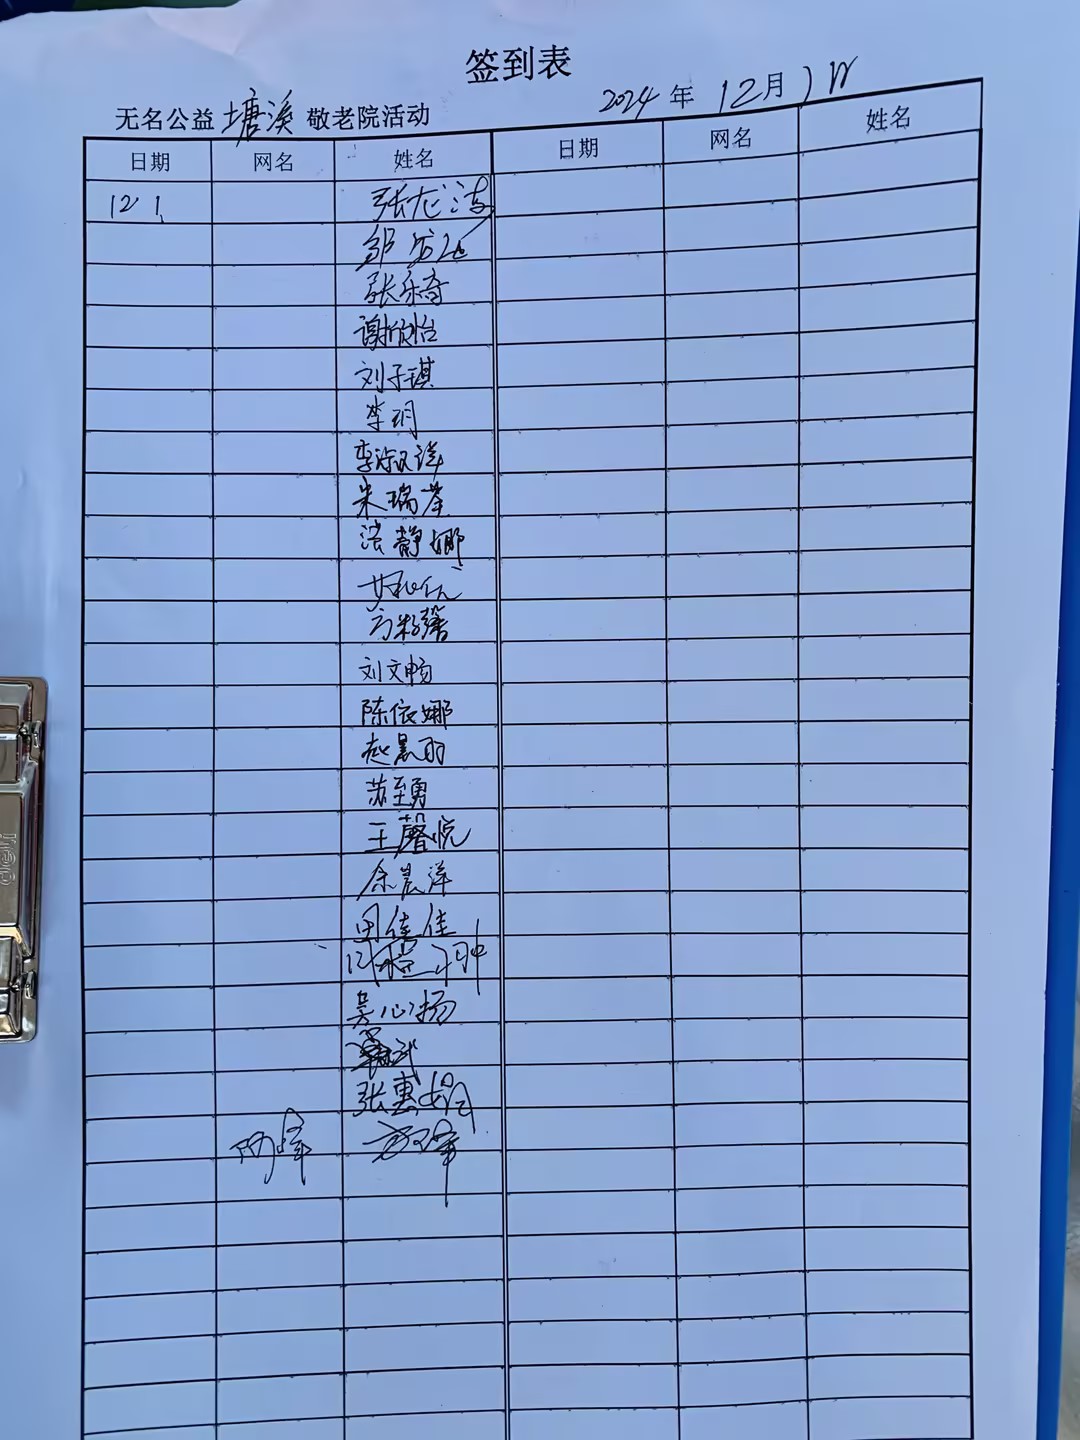 签到表
无名公益 塘溪 敬老院活动 2024 年 12月 1日
日期 网名 姓名 日期 网名 姓名
12 1 张龙涛
邹
张乐奇
谢欣怡
刘子琪
李玥
李淑
朱瑞荃
静娜
方籽馨
刘文畅
陈依娜
赵晨羽
苏至勇
王馨悦
余晨洋
田佳佳
吴心扬
张惠娟
阿峰